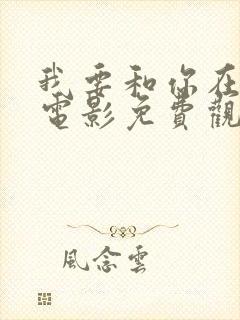 我要和你在
電影免費觀
風念雲